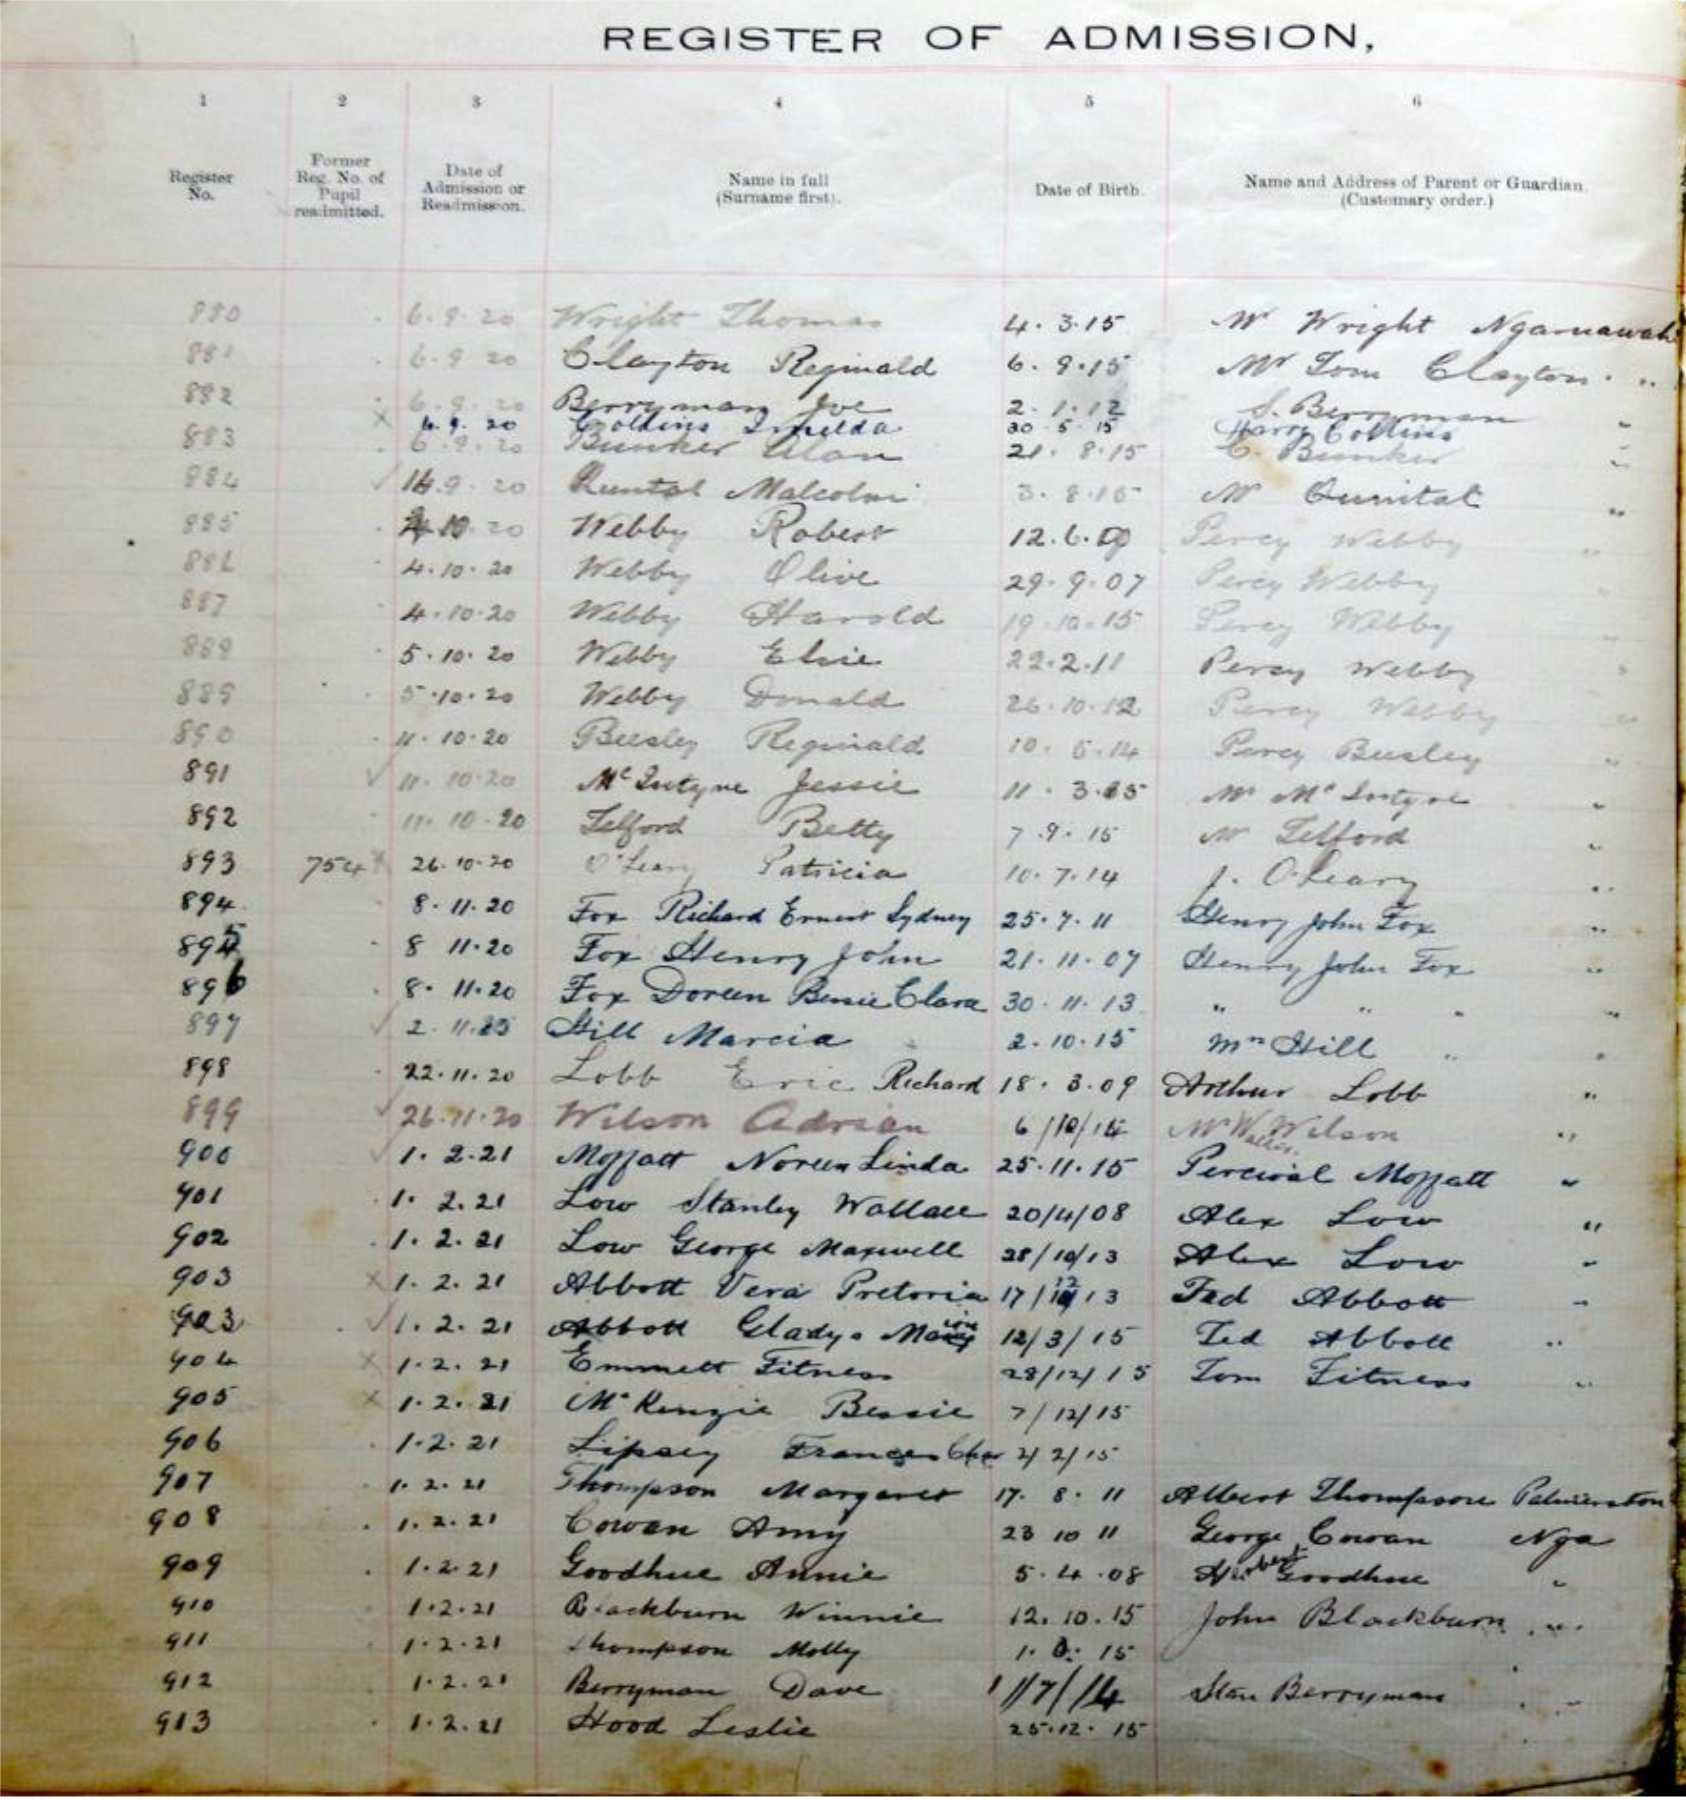 REGISTER OF ADMISSION,
1 2 3 4 5 6
Register No. Former Reg. No. of Pupil readmitted. Date of Admission or Readmission. Name in full (Surname first). Date of Birth. Name and Address of Parent or Guardian (Customary order.)
880 6.9.20 Wright Thomas 4.3.15 Mr Wright Ngaruawah
881 6.9.20 Clayton Reginald 6.9.15 Mr Tom Clayton "
882 6.9.20 Berryman Joe 2.1.12 S. Berryman "
x 6.9.20 Collins Imelda 30 5 15 Harry Collins
883 6.9.20 Bunker Alan 21.8.15 C. Bunker "
884 ✓ 14.9.20 Malcolm 3.8.15 Mr "
885 20 Webby Robert 12.6. Percy Webby "
886 4.10.20 Webby Olive 29.9.07 Percy Webby "
887 4.10.20 Webby Harold 19.10.15 Percy Webby "
888 5.10.20 Webby Elsie 22.2.11 Percy Webby "
889 5.10.20 Webby Donald 26.10.12 Percy Webby "
890 11.10.20 Beesley Reginald 10.5.14 Percy Beesley "
891 ✓ 11.10.20 McIntyre Jessie 11.3.15 Mr McIntyre "
892 11.10.20 Telford Betty 7.9.15 Mr Telford "
893 754 x 26.10.20 O'Leary Patricia 10.7.14 J. O'Leary "
894 8.11.20 Fox Richard Ernest Sydney 25.7.11 Henry John Fox "
895 8 11.20 Fox Henry John 21.11.07 Henry John Fox "
896 8.11.20 Fox Doreen Bessie Clara 30.11.13 " " " "
897 ✓ 2.11. Hill Marcia 2.10.15 Mrs Hill " "
898 22.11.20 Lobb Eric Richard 18.3.09 Arthur Lobb "
899 ✓ 26.11.20 Wilson Adrian 6/10/14 Mr W Wilson "
900 ✓ 1.2.21 Moffatt Noreen Linda 25.11.15 Percival Moffatt "
901 1.2.21 Low Stanley Wallace 20/4/08 Alex Low "
902 1.2.21 Low George Maxwell 28/10/13 Alex Low "
903 x 1.2.21 Abbott Vera Pretoria 17/12/13 Ted Abbott "
903 ✓ 1.2.21 Abbott Gladys Marion 12/3/15 Ted Abbott "
904 x 1.2.21 Emmett Fitness 28/12/15 Tom Fitness "
905 x 1.2.21 McKenzie Bessie 7/12/15
906 1.2.21 Lipsey Frances 2/2/15
907 1.2.21 Thompson Margaret 17.8.11 Albert Thompson Palmerston
908 1.2.21 Cowan Amy 23 10 11 George Cowan Nga
909 1.2.21 Goodhue Annie 5.4.08 Herbert Goodhue "
910 1.2.21 Blackburn Winnie 12.10.15 John Blackburn "
911 1.2.21 Thompson Molly 1. 15
912 1.2.21 Berryman Dave 1/7/14 Stan Berryman "
913 1.2.21 Hood Leslie 25.12.15